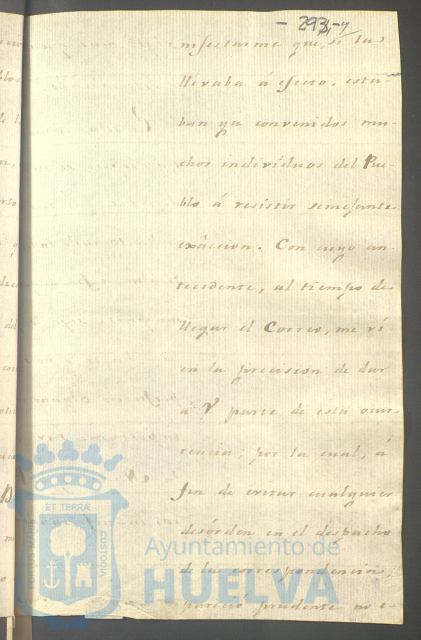 - 293,-4
nifestarme que, si la
llevaba á efecto, esta-
ban ya convenidos mu-
chos individuos del Pue-
blo á resistir semejante
exâccion. Con cuyo an-
tecedente, al tiempo de
llegar el Correo, me ví
en la precision de dar
á V parte de esta ocur-
rencia, por la cual, á
fin de evitar cualquier
desórden en el despacho
de la correspondencia,
pareció prudente no e-
ET TERRÆ
CUSTODIA
Ayuntamiento de
HUELVA